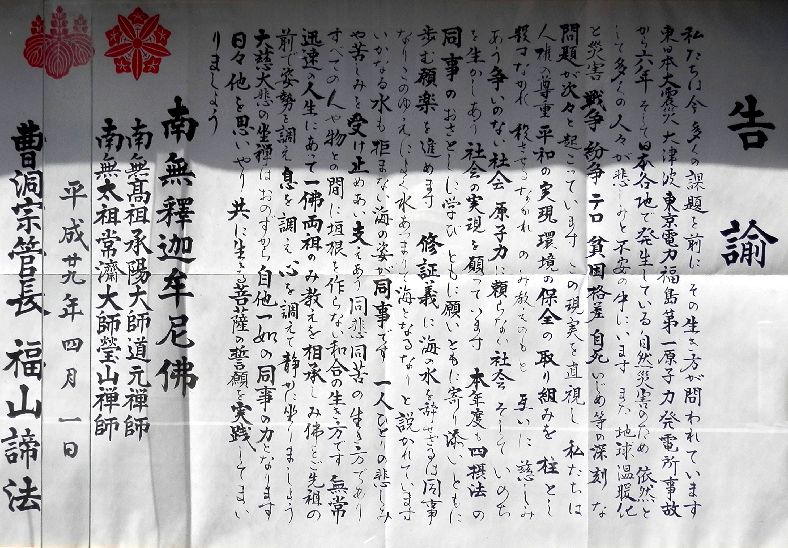 告諭
私たちは今 多くの課題を前に その生き方が問われています
東日本大震災 大津波 東京電力福島第一原子力発電所事故
から六年 そして日本各地で発生している自然災害のため 依然と
して多くの人々が悲しみと不安の中にいます また地球温暖化
と災害 戦争 紛争 テロ 貧困格差 自死 いじめ等の深刻な
問題が次々と起こっています この現実を直視し 私たちは
人権の尊重 平和の実現 環境の保全の取り組みを 柱とし
殺すなかれ 殺させるなかれ のみ教えのもと 互いに慈しみ
あう争いのない社会 原子力に頼らない社会 そしていのち
を生かしあう社会の実現を願っています 本年度も四摂法の
同事のおさとしに学び ともに願い ともに寄り添い ともに
歩む願楽を進めます 修証義に海の水を辞せざるは同事
なり このゆえによく水あつまりて海となるなりと説かれています
いかなる水も拒まない海の姿が同事です 一人ひとりの悲しみ
や苦しみを受け止めあい 支えあう同悲同苦の生き方であり
すべての人や物との間に垣根を作らない和合の生き方です 無常
迅速の人生にあって一佛両祖のみ教えを相承し み佛とご先祖の
前で姿勢を調え 息を調え 心を調えて静かに坐りましょう
大慈大悲の坐禅はおのずから自他一如の同事の力となります
日々他を思いやり 共に生きる菩薩の誓願を実践してまい
りましょう
南無釋迦牟尼佛
南無高祖承陽大師道元禅師
南無太祖常濟大師瑩山禅師
平成廿九年四月一日
曹洞宗管長 福山諦法